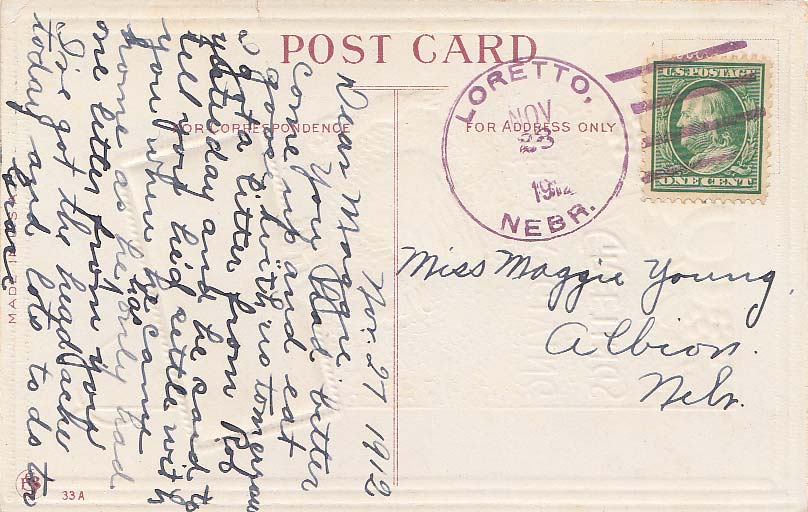 POST CARD
FOR CORRESPONDENCE
FOR ADDRESS ONLY
MADE IN
33A
LORETTO,
NOV
23
1912
NEBR.
U.S. POSTAGE
ONE CENT
Miss Maggie Young,
Albion.
Nebr.
Nov. 27 1912
Dear Maggie
You Had better
come up and eat
a goose with us tomorrow
got a letter from Roy
yesterday and he said to
tell you he'd settle with
you when he came
home as he has only had
one letter from you
I've got the headache
today and lots to do too